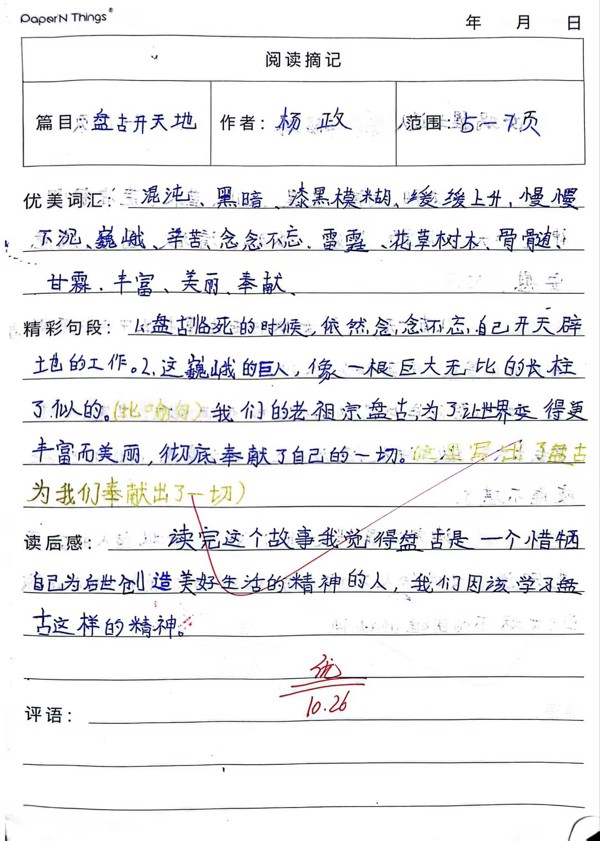 PaperN Things®
年 月 日
阅读摘记
篇目: 盘古开天地 作者: 杨政 范围: 5—7页
优美词汇: 混沌、黑暗、漆黑模糊、缓缓上升,慢慢
下沉、巍峨、辛苦、念念不忘、雷霆、花草树木、骨骼、
甘霖.丰富、美丽、奉献、
精彩句段: 1.盘古临死的时候,依然念念不忘自己开天辟
土地的工作。2.这巍峨的巨人,像一根巨大无比的长柱
了似人的。(比喻句) 我们的老祖宗盘古,为了让世界变得更
丰富而美丽,彻底奉献了自己的一切。(这里写出了盘古
为我们奉献出了一切)
读后感: 读完这个故事我觉得盘古是一个惜牺
自己为后世创造美好生活的精神的人,我们因该学习盘
古这样的精神。
优
10.26
评语: